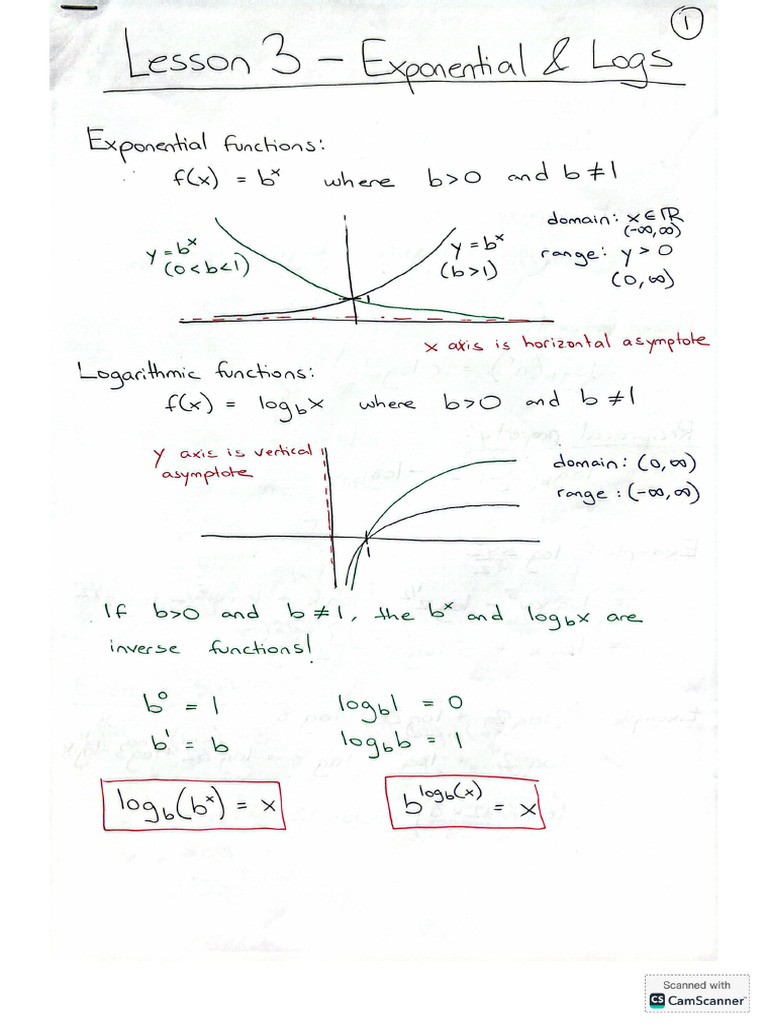 1
Lesson 3 – Exponential & Logs
Exponential functions:
f(x) = bˣ where b>0 and b≠1
domain: x∈ℝ
(-∞,∞)
range: y>0
(0,∞)
y=bˣ
(0<b<1)
y=bˣ
(b>1)
1
x axis is horizontal asymptote
Logarithmic functions:
f(x) = log_b x where b>0 and b≠1
y axis is vertical
asymptote
domain: (0,∞)
range: (-∞,∞)
1
If b>0 and b≠1, the bˣ and log_b x are
inverse functions!
b⁰ = 1 log_b 1 = 0
b¹ = b log_b b = 1
log_b(bˣ) = x b^(log_b(x)) = x
Scanned with
CS CamScanner